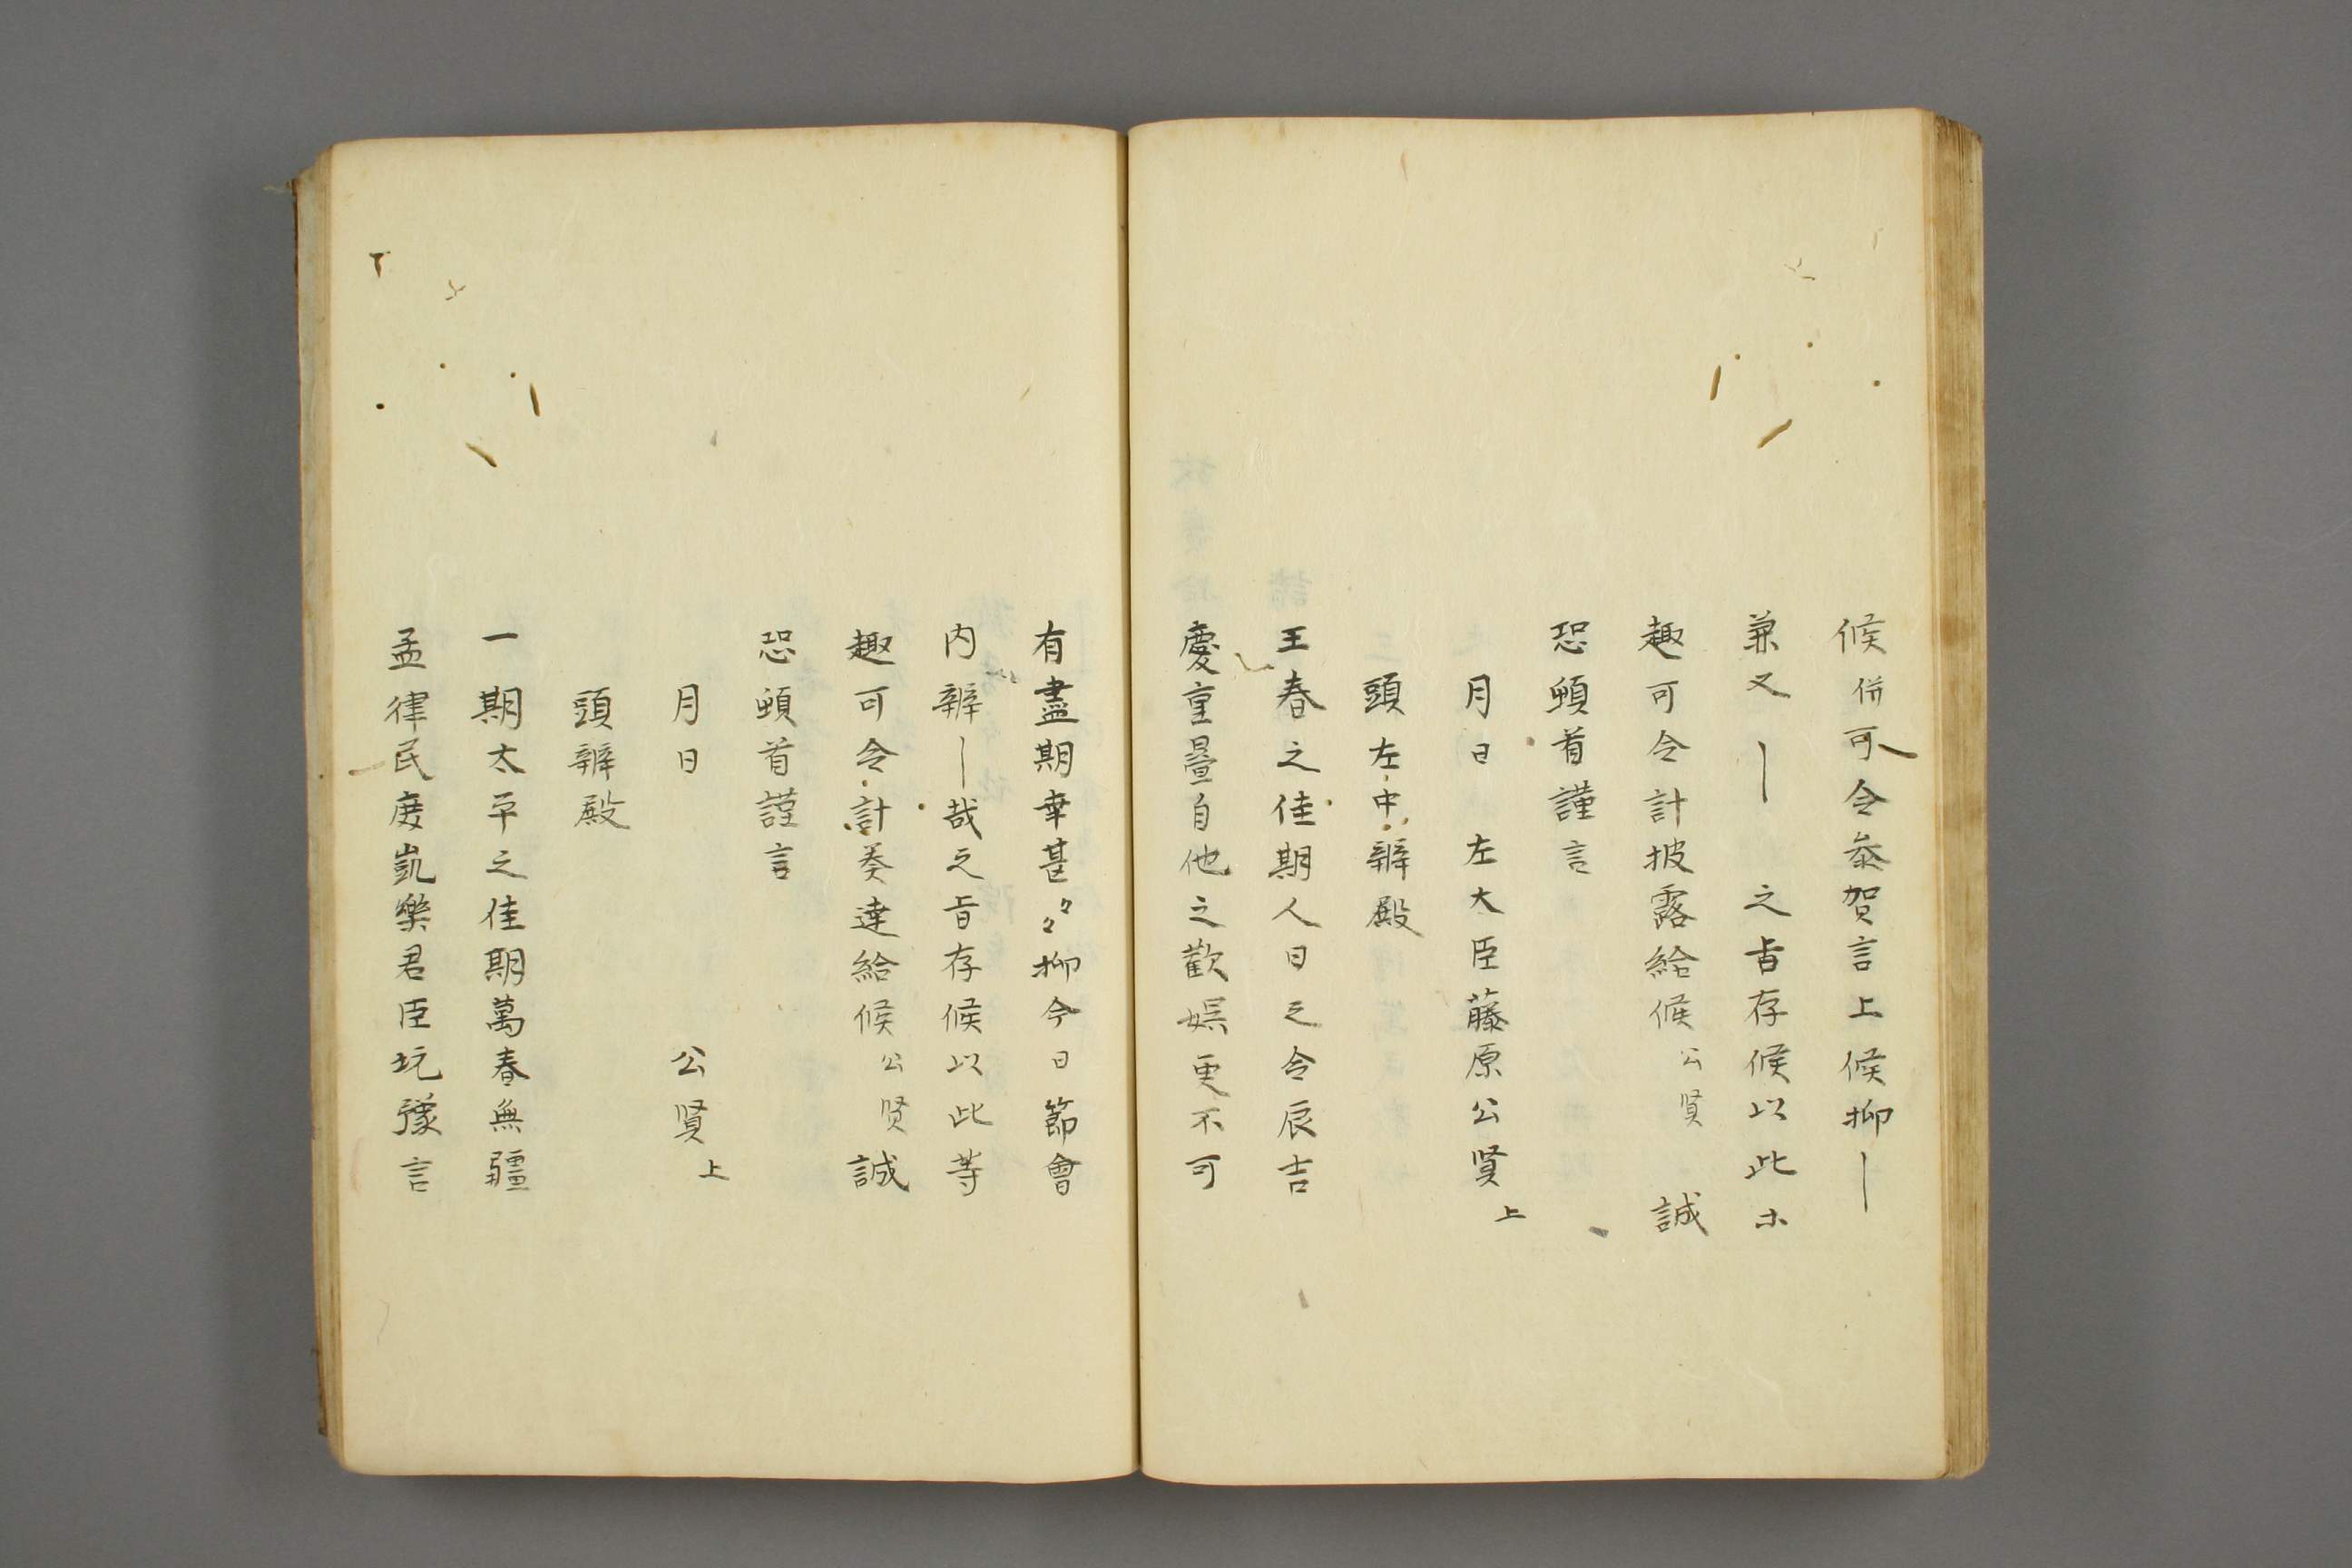 候併可令参賀言上候抑〡
兼又〡之旨存候以此ホ
趣可令計披露給候公賢誠
恐頓首謹言
月日 左大臣藤原公賢上
頭左中辨殿
王春之佳期人日之令辰吉
慶重疊自他之歡娯更不可
有盡期幸甚々々抑今日節會
内辨〡哉之旨存候以此等
趣可令計奏達給候公賢誠
恐頓首謹言
月日 公賢上
頭辨殿
一期太平之佳期萬春無疆
孟律民庶凱樂君臣 豫言